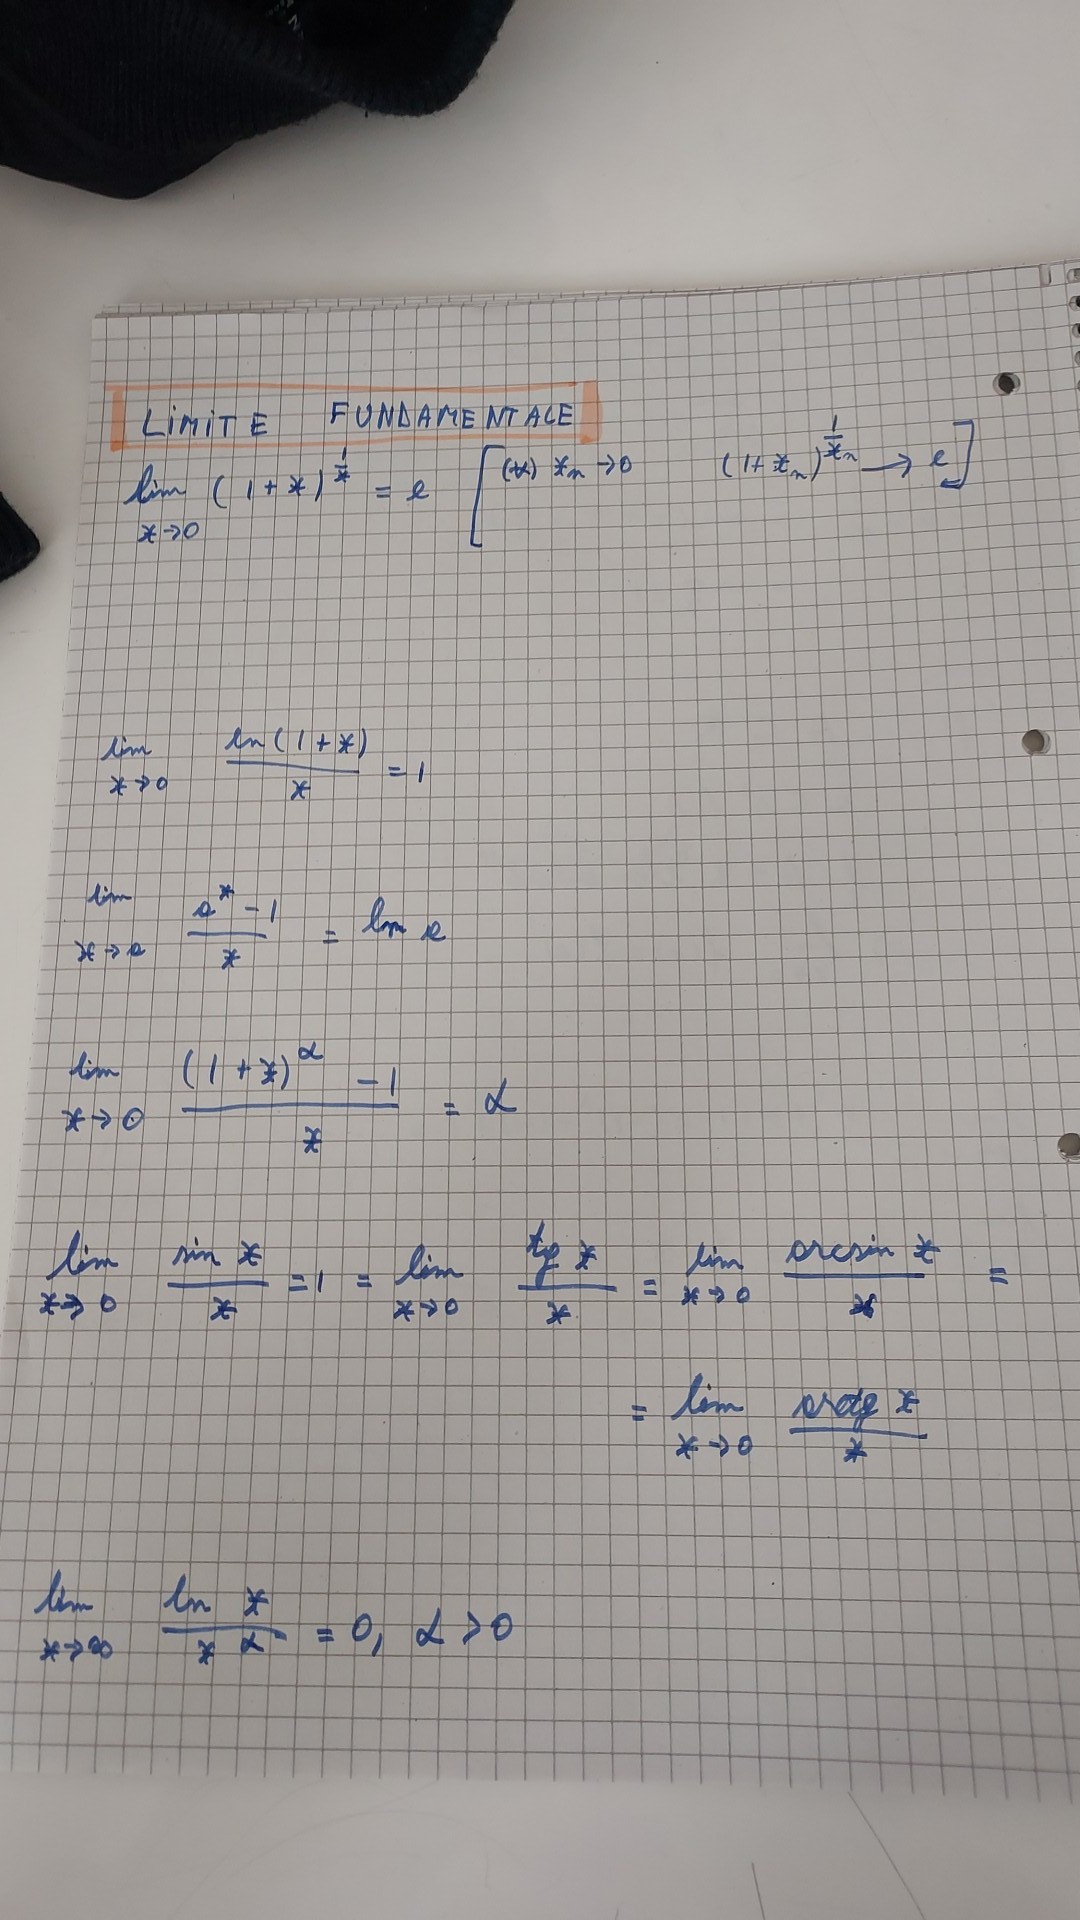 LIMITE FUNDAMENTALE
lim x→0 (1+x)^(1/x) = e [(∀) x_n→0 (1+x_n)^(1/x_n) → e]
lim x→0 ln(1+x)/x = 1
lim x→0 (a^x - 1)/x = ln a
lim x→0 ((1+x)^α - 1)/x = α
lim x→0 sin x/x = 1 = lim x→0 tg x/x = lim x→0 arcsin x/x =
= lim x→0 arctg x/x
lim x→∞ ln x/x^α = 0, α > 0